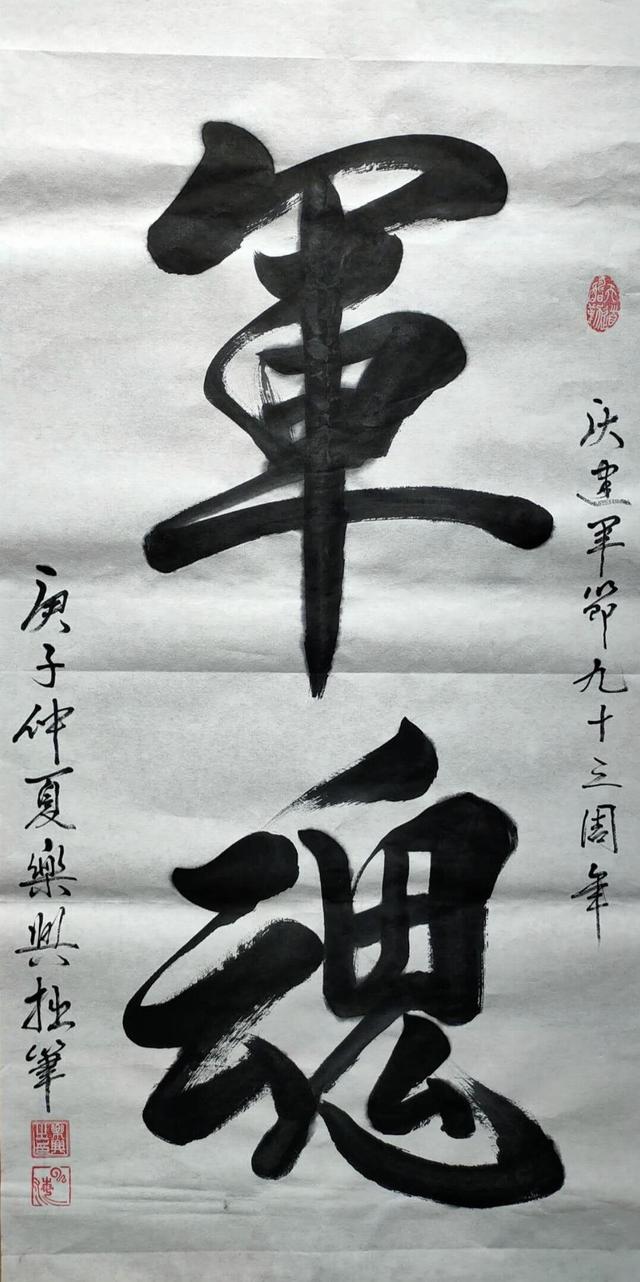 庆建军节九十三周年
軍魂
庚子仲夏樂興拙筆
天道酬勤